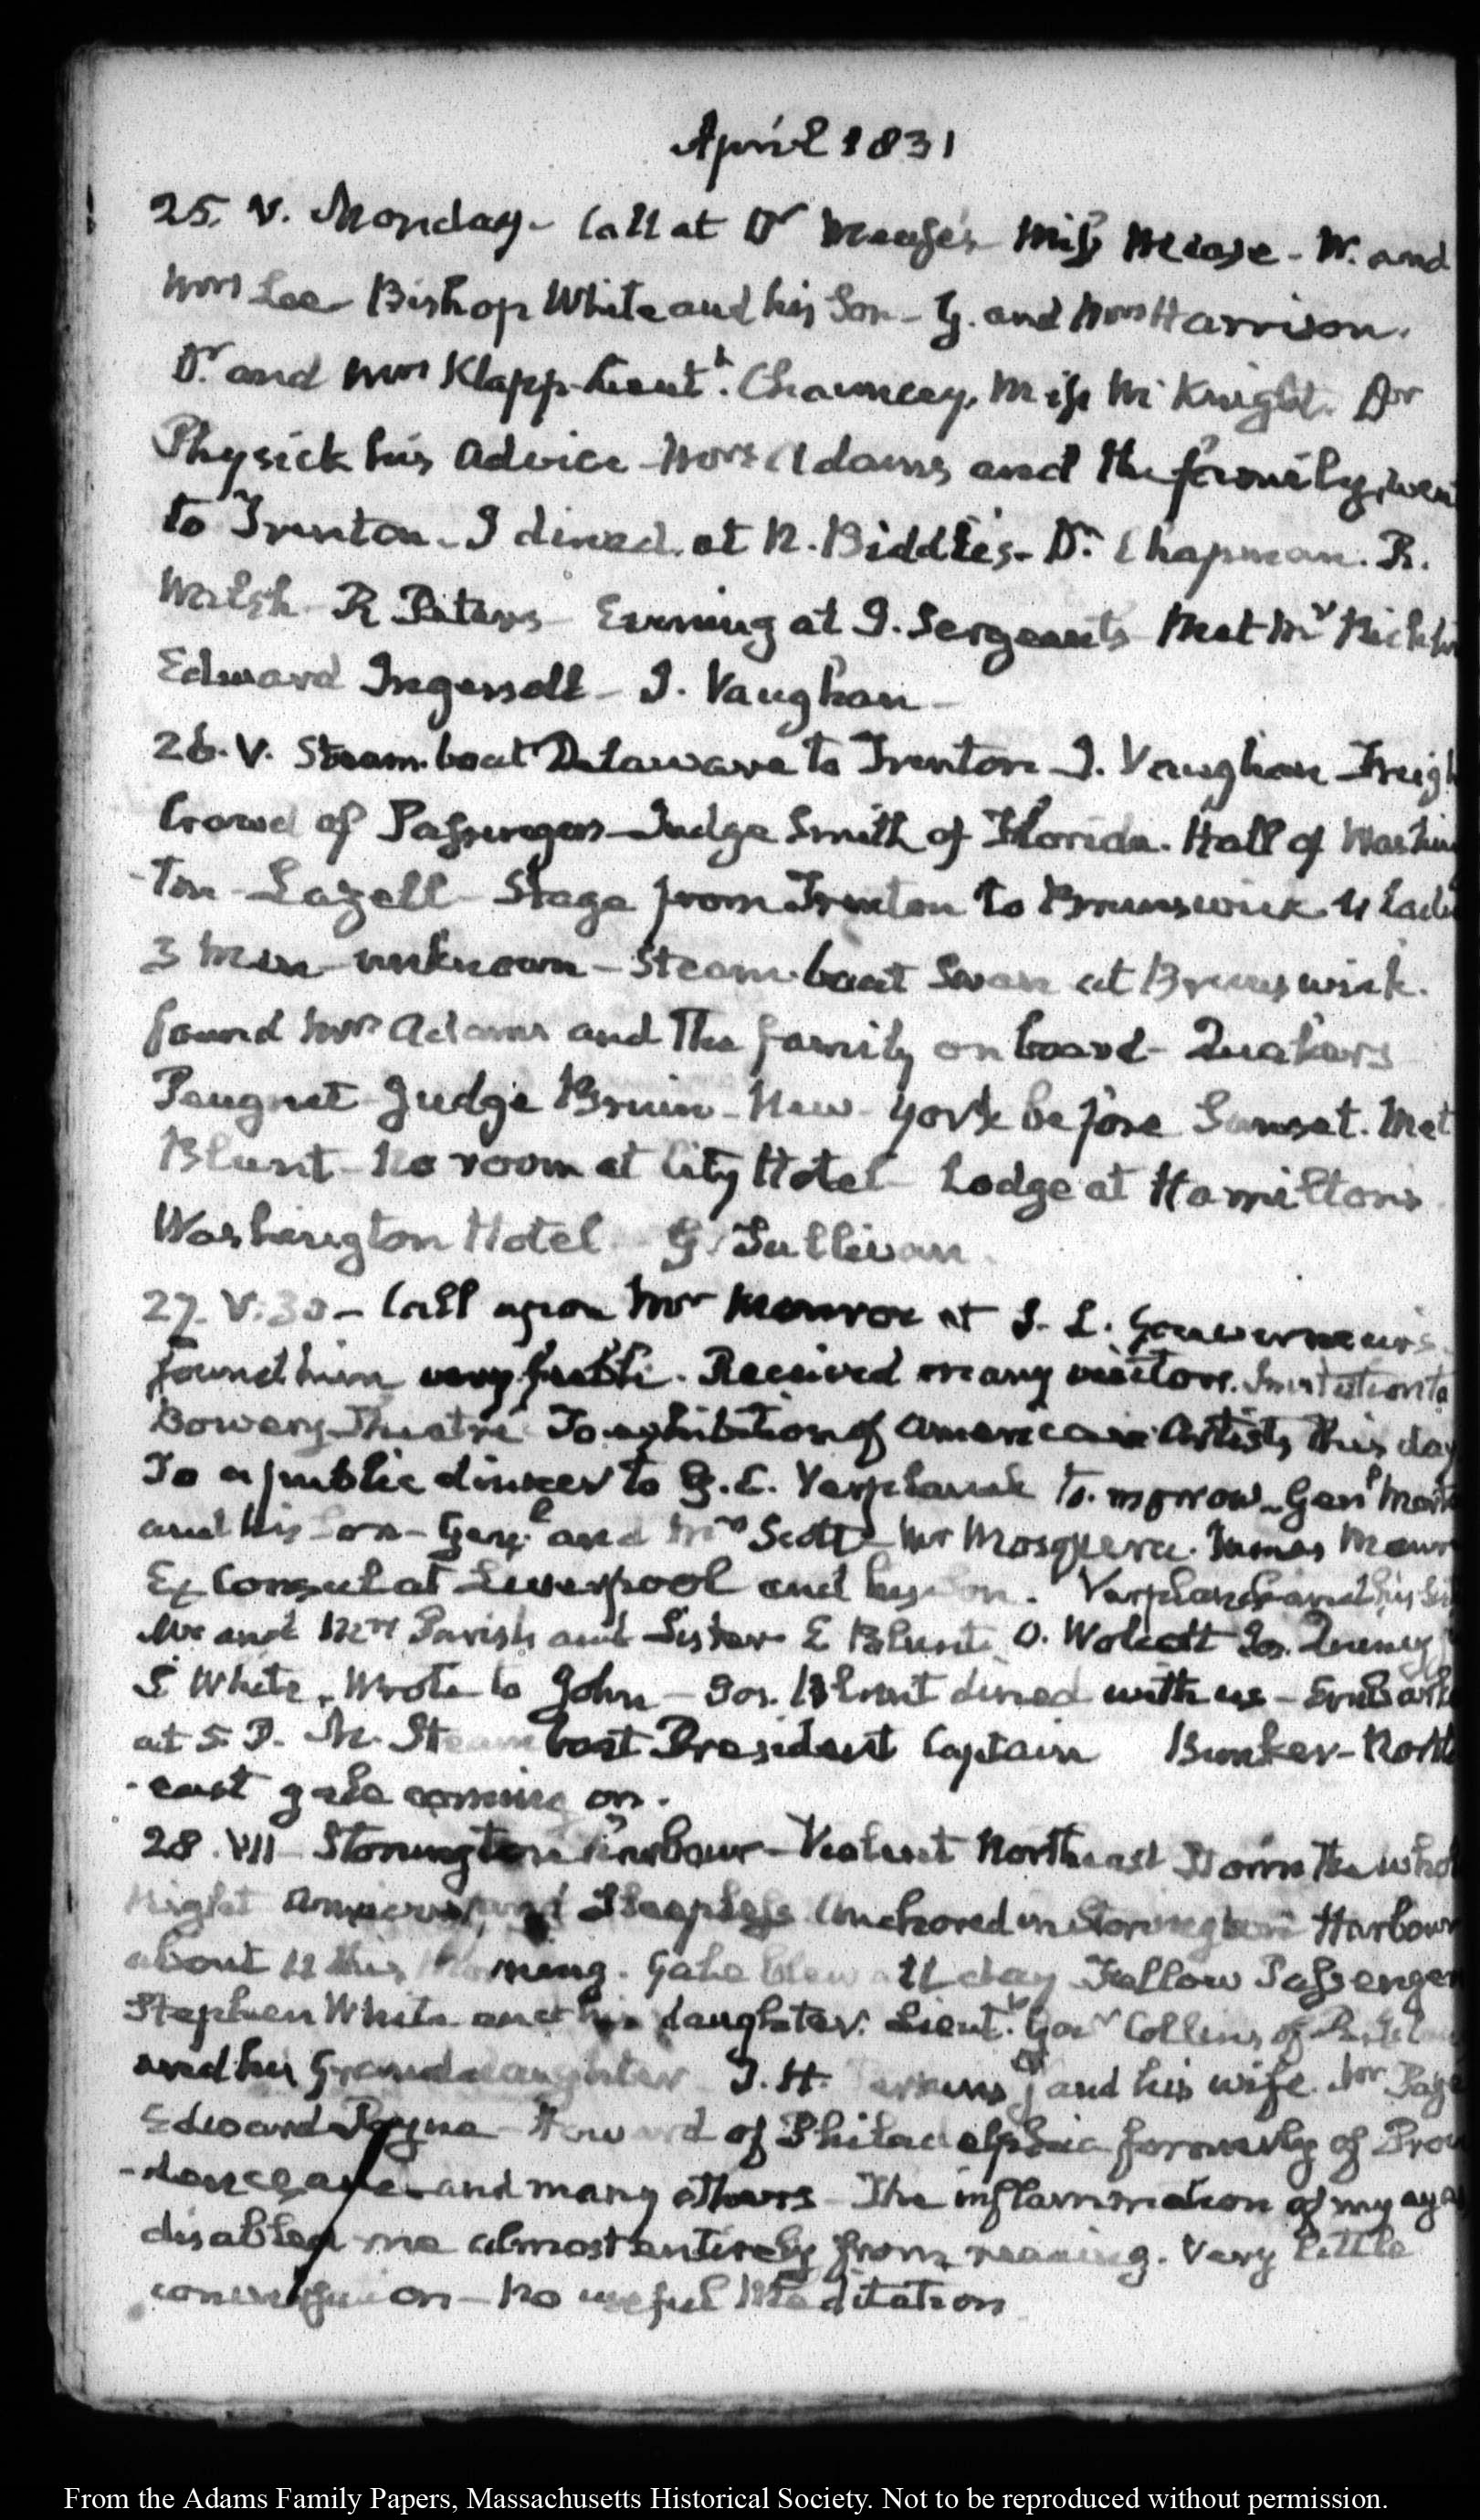 April 1831
25. V. Monday. Call at Dr Mease's Miss Mease - W. and
Mrs Lee Bishop White and his Son - G. and Mrs Harrison.
Dr. and Mrs Klapp. Lieutt. Chauncey, Miss McKnight. Dr
Physick his advice Mrs Adams and the family, went
to Trenton. I dined at N. Biddle's. Dr. Chapman. R.
Walsh R Peters Evening at J. Sergeant's Met Mr
Edward Ingersoll - J. Vaughan -
26. V. Steam-boat Delaware to Trenton J. Vaughan
Crowd of Passengers - Judge Smith of Florida. Hall of Washing
-ton - Lazell - Stage from Trenton to Brunswick
3 Men unknown - Steam-boat Swan at Brunswick.
found Mrs Adams and the family on board - Quakers
Peugnet Judge Bruin - New York before Sunset. Met
Blunt - No room at City Hotel Lodge at Hamilton's
Washington Hotel G. Sullivan
27. V:30 - Call upon Mr Monroe at S. L. Gouverneur's.
found him very feeble. Received many visitors. Invitation to
Bowery Theatre To exhibition of American Artists this day
To a public dinner to G. C. Verplanck to-morrow - Genl
and his son - Genl and Mrs Scott Mr Mosquera. James Maury
Ex Consul at Liverpool and his son. Verplanck and his
Mr and Mrs Parish and Sister E Blunt. O. Wolcott Jos. Quincy
S White. Wrote to John - Jos. Blunt dined with us - Embark
at 5 P. M. Steam boat President Captain Bunker - North
-east gale coming on.
28. VII Stonington Harbour - Violent Northeast Storm the whole
Night anxious and Sleepless Anchored in Stonington Harbour
about 11 this Morning. Gale blew all day Fellow Passengers
Stephen White and his daughter. Lieutt. Govr Collins of
and his Granddaughter T. H. Perkins Jr and his wife. Mr Page
Edward Payne - Howard of Philadelphia formerly of Provi
-dence and many others - The inflammation of my eyes
disabled me almost entirely from reading. Very little
conversation - No useful Meditation
From the Adams Family Papers, Massachusetts Historical Society. Not to be reproduced without permission.